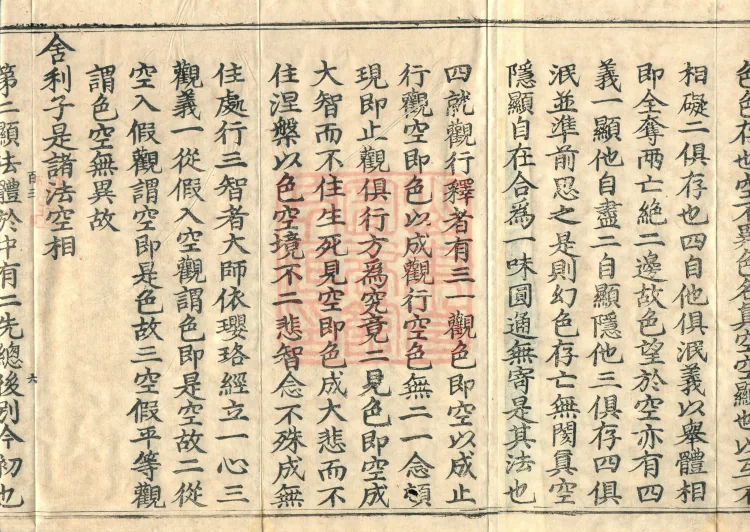 色色存也空不異色名眞空空顯也以互不
相礙二俱存也四自他俱泯義以舉體相
即全奪兩亡絶二邊故色望於空亦有四
義一顯他自盡二自顯隱他三俱存四俱
泯並準前思之是則幻色存亡無閡眞空
隱顯自在合爲一味圓通無寄是其法也
四就觀行釋者有三一觀色即空以成止
行觀空即色以成觀行空色無二一念頓
現即止觀俱行方爲究竟二見色即空成
大智而不住生死見空即色成大悲而不
住涅槃以色空境不二悲智念不殊成無
住處行三智者大師依瓔珞經立一心三
觀義一從假入空觀謂色即是空故二從
空入假觀謂空即是色故三空假平等觀
謂色空無異故
舍利子是諸法空相
百三
六
第二顯法體於中有二先總後別今初也